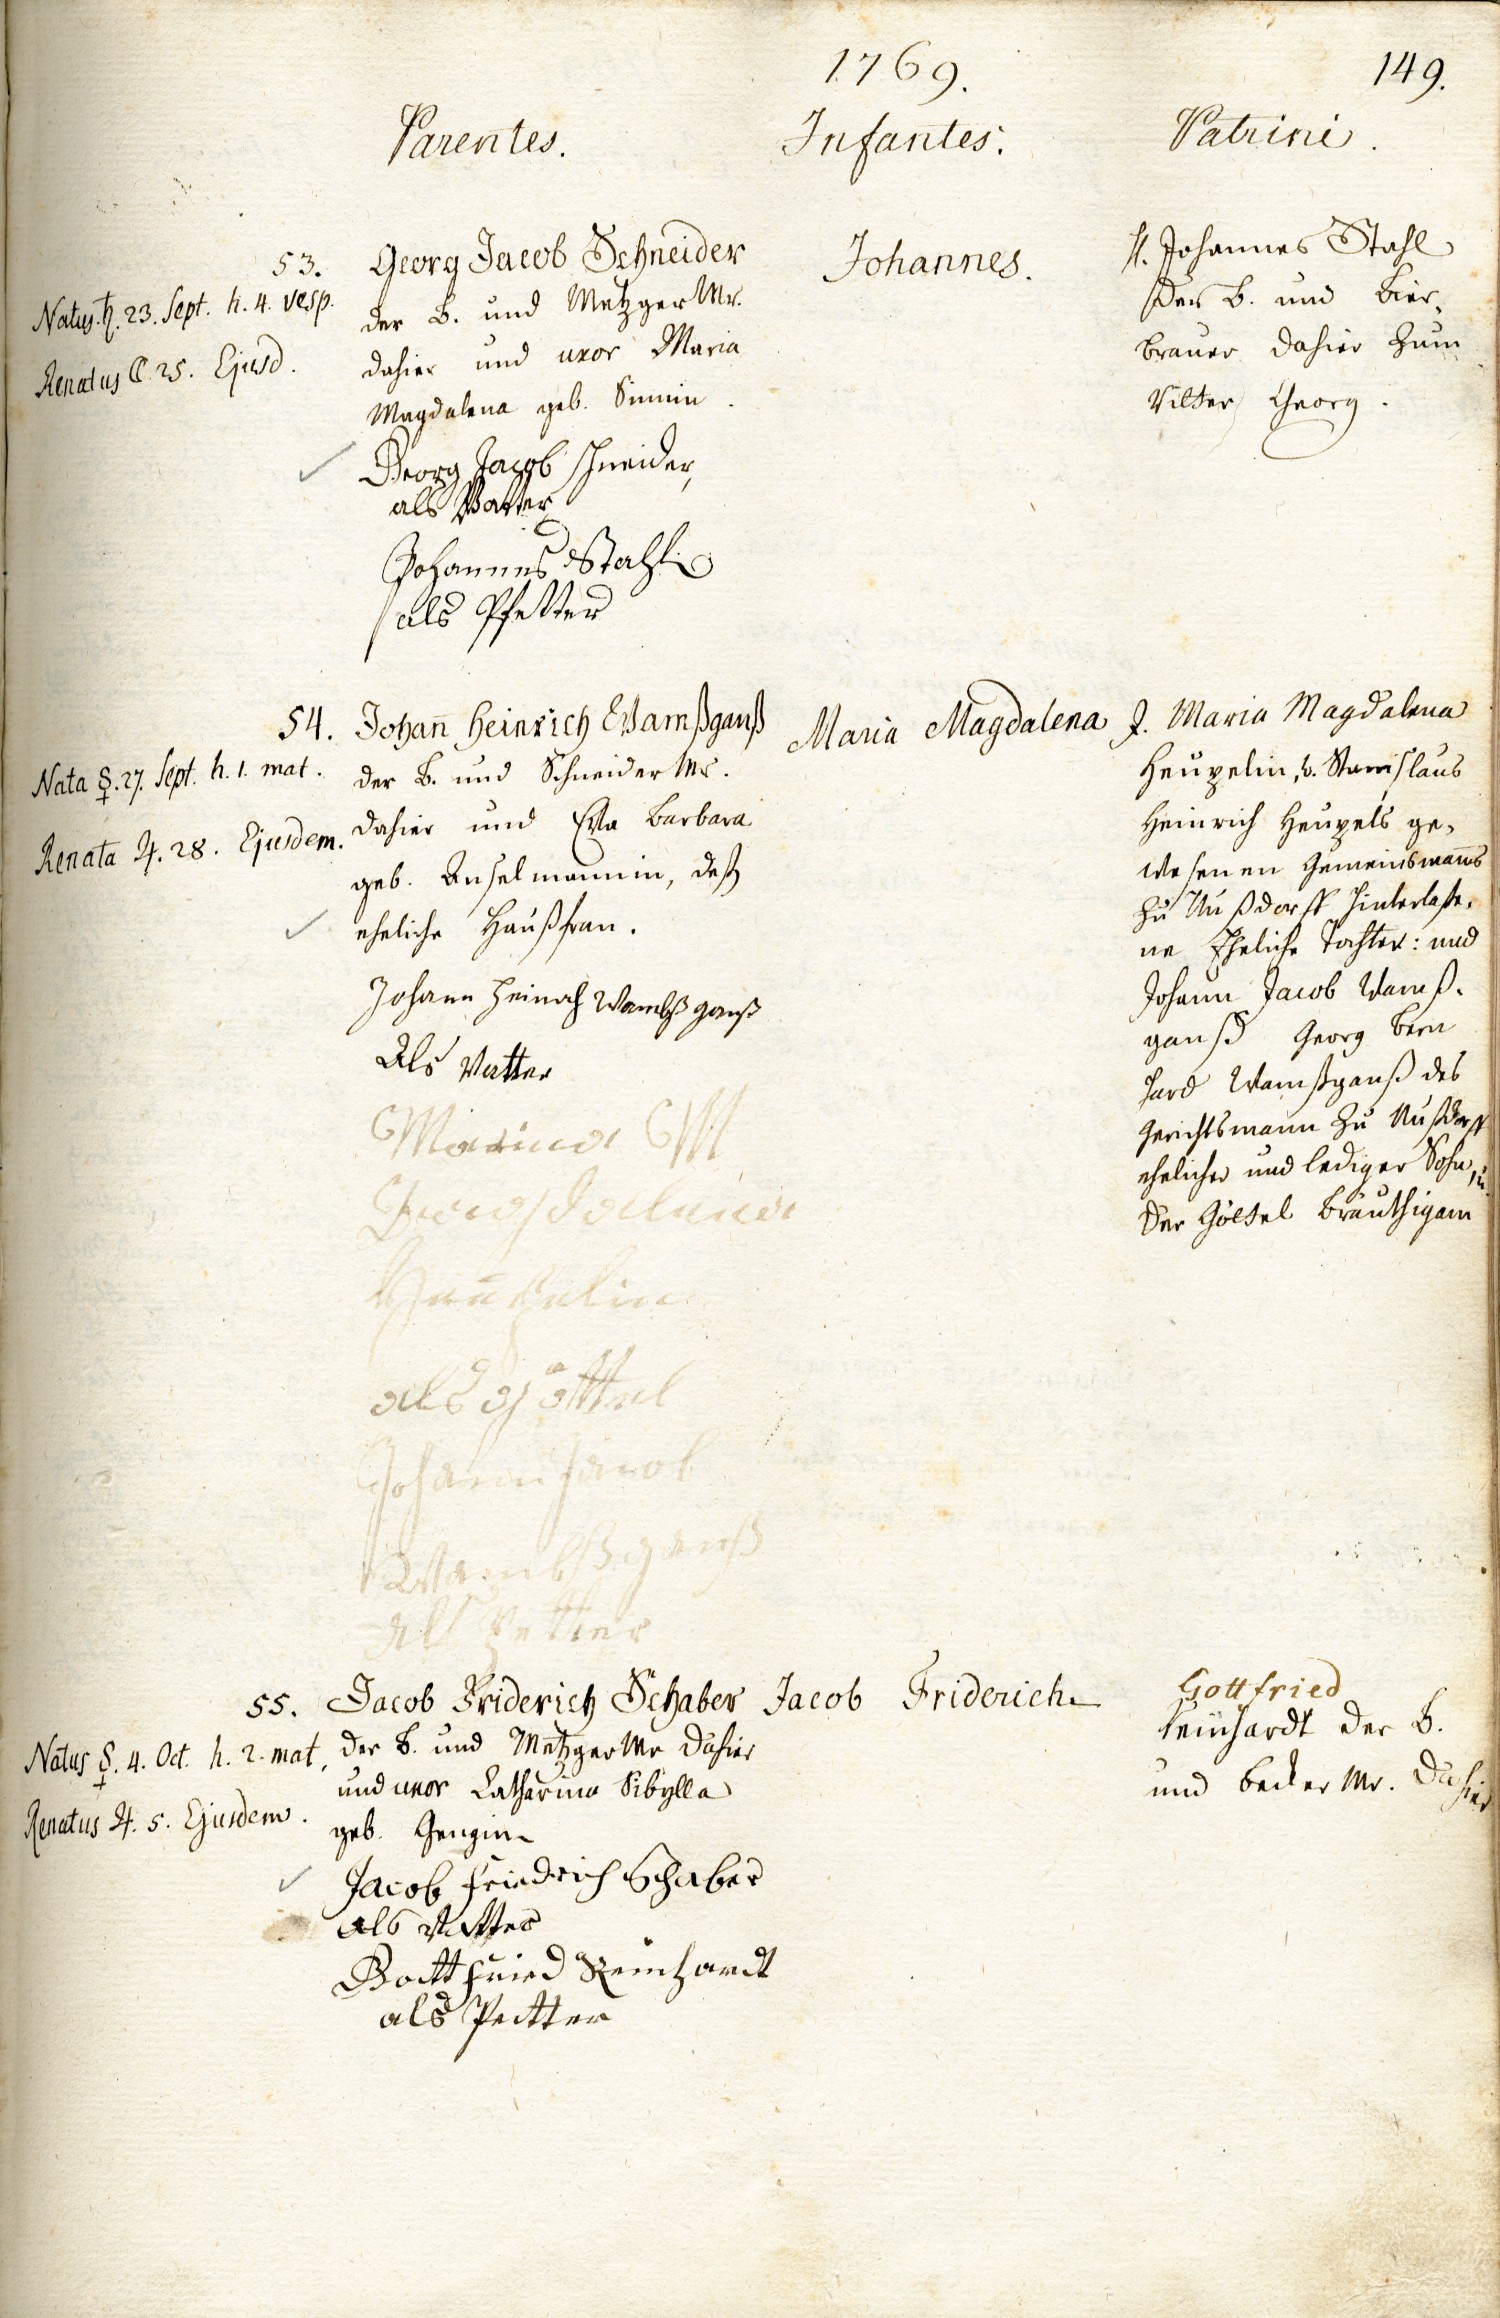 1769.
149.
Parentes.
Infantes.
Patrini.
53.
Natus ♄. 23. Sept. h. 4. vesp.
Renatus ☾ 25. Ejusd.
Georg Jacob Schneider
der B. und Metzger Mr.
dahier und uxor Maria
Magdalena geb.
Georg Jacob Schneider,
als Vatter
Johannes Stahl
als Pfetter
Johannes.
H. Johannes Stahl
der B. und Bier-
brauer dahier zum
Ritter Georg.
54.
Nata ☿. 27. Sept. h. 1. mat.
Renata ♃. 28. Ejusdem.
Johan̄ Heinrich Wamßganß
der B. und Schneider Mr.
dahier und Eva Barbara
geb. Anselmannin, deß
eheliche Haußfrau.
Johann Heinrich Wambßganß
Als Vatter
Maria M
Magdalena
Heupelin
als Göttel
Johann Jacob
Wambßganß
als Petter
Maria Magdalena
J. Maria Magdalena
Heupelin, v. Stanislaus
Heinrich Heupels ge-
wesenen Gemeinsman̄s
zu Nußdorff hinterlaße-
ne Eheliche Tochter: und
Johann Jacob Wamß-
ganß Georg Bern
hard Wamßganß des
Gerichtsmann zu Nußdorff
ehelicher und lediger Sohn, u.
der Göttel Bräuthigam
55.
Natus ☿. 4. Oct. h. 2. mat,
Renatus ♃. 5. Ejusdem.
Jacob Friderich Schaber
der B. und Metzger Mr dahier
und uxor Catharina Sibylla
geb. Gengin
Jacob Friedrich Schaber
als Vatter
Gottfried Reinhardt
als Petter
Jacob Friderich
Gottfried
Reinhardt der B.
und Becker Mr. dahier